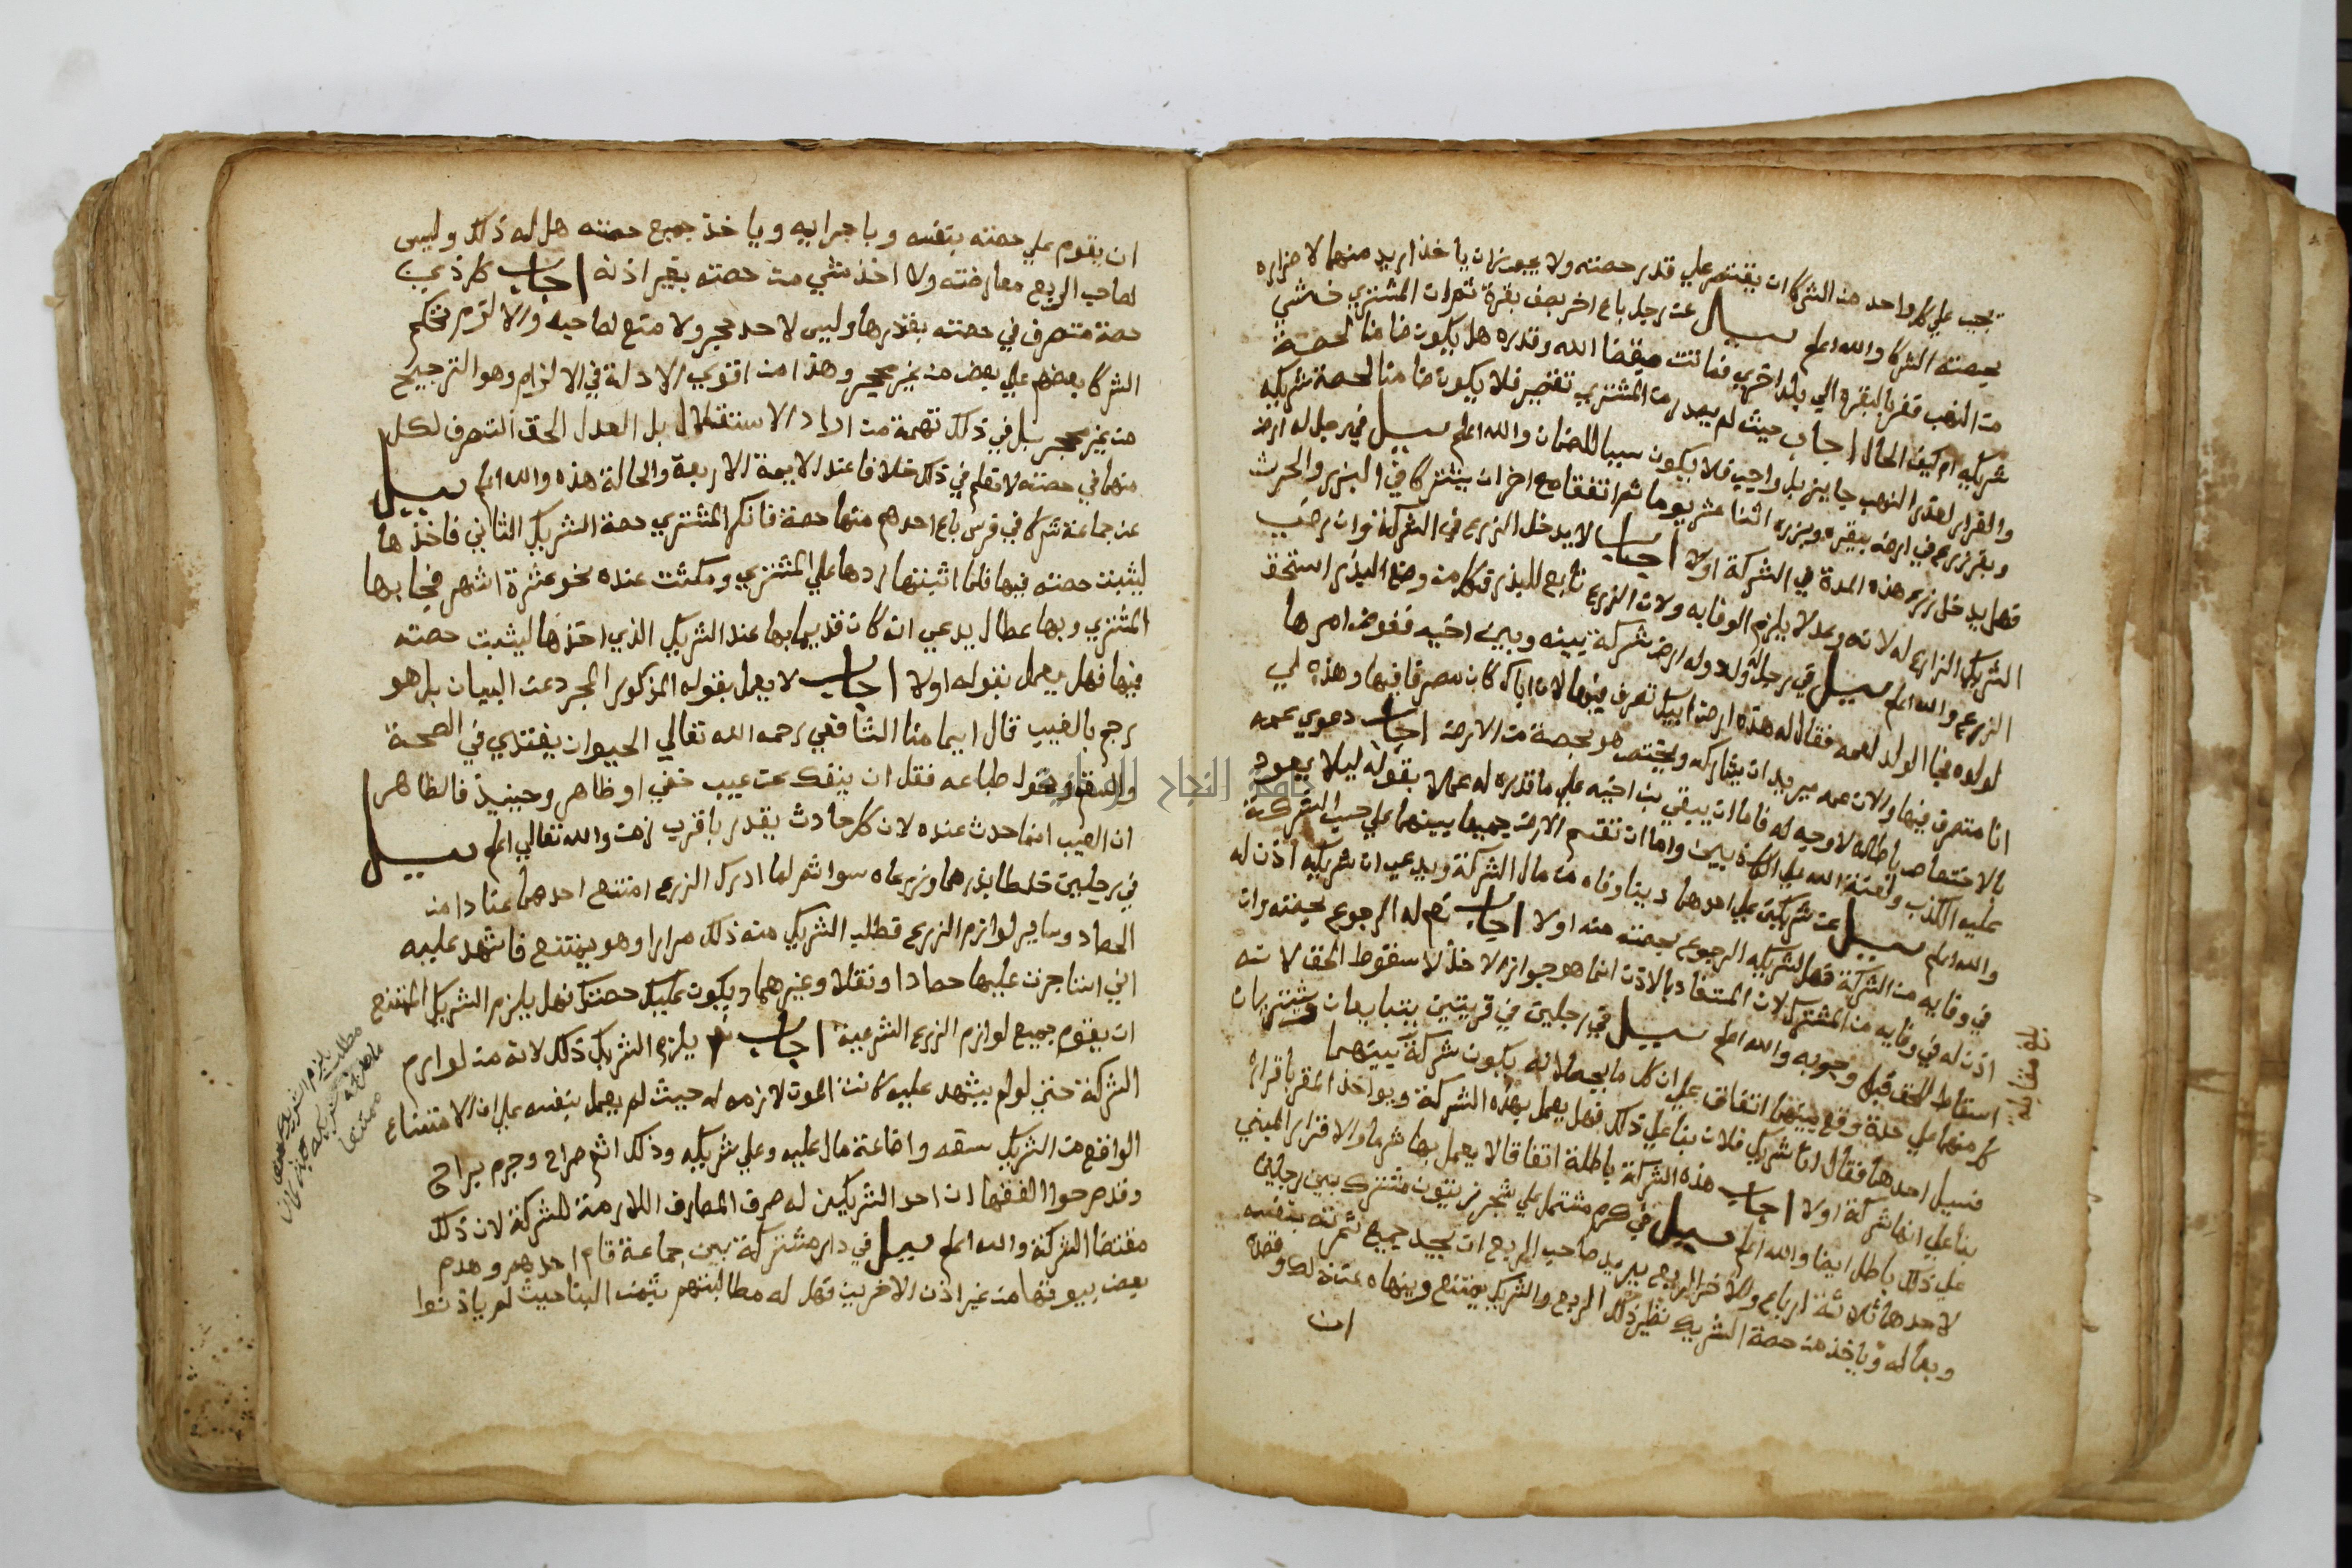 يجب علي كل واحد من الشركا ان يقتصر علي قدر حصته ولا يجوز ان ياخذ ازيد منها لاضراره
بحصته الشركا والله اعلم سيل عن رجل باع اخر نصف بقرة ثم ان المشتري خشي
من النهب ففر بالبقرة الي بلد اخري فماتت بقضا الله وقدره هل يكون ضامنا لحصة
شريكه ام كيف الحال اجاب حيث لم يصدر من المشتري تقصير فلا يكون ضامنا لحصة شريكه
والفرار لعذر النهب جايز بل واجب فلا يكون سببا للضمان والله اعلم سيل في رجل له ارض
وبقر زرع في ارضه ببقره وبزره اثنا عشر يوما ثم اتفقا مع اخر ان يشتركا في البزر والحرث
فهل يدخل زرع هذه المدة في الشركة اولا اجاب لا يدخل الزرع في الشركة وان رضي
الشريك الزارع له لانه وعد لا يلزم الوفا به ولان الزرع تابع للبذر فكل من وضع البذر استحق
الزرع والله اعلم سيل في رجل له ولد وله ارض شركة بينه وبين اخيه ففوض امرها
لولده فجا الولد لعمه فقال له هذه ارض ابيك تصرف فيها لان اباك كان مصرفا فيها وهذه لي
انا متصرف فيها والان عمه يريد ان يشاركه ويختص هو بحصة من الارض اجاب دعوي عمه
بالاختصاص باطلة لا وجه له فاما ان يبقي بن اخيه علي ما قدره له عملا بقوله ليلا يعود
عليه الكذب ولعنة الله علي الكاذبين واما ان تقسم الارض جميعها بينهما علي حسب الشركة
والله اعلم سيل عن شريكين علي احدهما دينا وفاه من مال الشركة ويدعي ان شريكه اذن له
في وفايه من الشركة فهل لشريكه الرجوع بحصته منه اولا اجاب نعم له الرجوع بحصته وان
اذن له في وفايه من المشترك لان المستفاد بالاذن انما هو جواز الاخذ لا سقوط الحق لانه
اسقاط للحق قبل وجوبه والله اعلم سيل في رجلين في قريتين يتبايعان ويشتريان
كل منهما علي حدة وقع بينهما اتفاق علي ان كل ما يحصلانه يكون شركة بينهما
فسيل احدهما فقال انا شريك فلان بنا علي ذلك فهل يعمل بهذه الشركة ويواخذ المقر باقراره
بنا علي انها شركة اولا اجاب هذه الشركة باطلة اتفاقا لا يعمل بها شرعا والاقرار المبني
علي ذلك باطل ايضا والله اعلم سيل في كرم مشتمل علي شجر زيتون مشترك بين رجلين
لاحدهما ثلاثة ارباع وللاخر الربع يريد صاحب الربع ان يجد جميع ثمرته بنفسه
وبعماله وياخذ من حصة الشريك نظير ذلك الربع والشريك يمتنع وينهاه عن ذلك وقصده
ان
بلغ مقابلة
ان يقوم علي حصته بنفسه وباجرايه وياخذ جميع حصته هل له ذلك وليس
لصاحب الربع معارضته ولا اخذ شي من حصته بغير اذنه اجاب كل ذي
حصة متصرف في حصته بقدرها وليس لاحد حجر ولا منع لصاحبه والا لزم تحكم
الشركا بعضهم علي بعض من غير حجر وهذا من اقوي الادلة في الالزام وهو الترجيح
من غير مجر بل في ذلك تهمة من اراد الاستقلال بل العدل الحق التصرف لكل
منهما في حصته لا نعلم في ذلك خلافا عند الايمة الاربعة والحالة هذه والله اعلم سيل
عن جماعة شركا في فرس باع احدهم منها حصة فانكر المشتري حصة الشريك الثاني فاخذها
ليثبت حصته فيها فلما اثبتها ردها علي المشتري ومكثت عنده نحو عشرة اشهر فجا بها
المشتري وبها عطال يدعي انه كان قديما بها عند الشريك الذي اخذها ليثبت حصته
فيها فهل يعمل بقوله اولا اجاب لا يعمل بقوله المذكور المجرد عن البيان بل هو
رجم بالغيب قال امامنا الشافعي رحمه الله تعالي الحيوان يغتذي في الصحة
والسقم وتحول طباعه فقل ان ينفك عن عيب خفي او ظاهر وحينيذ فالظاهر
ان العيب انما حدث عنده لان كل حادث يقدر باقرب زمن والله تعالي اعلم سيل
في رجلين خلطا بذرهما وزرعاه سوا ثم لما ادرك الزرع امتنع احدهما عنادا من
الحصاد وساير لوازم الزرع فطلب الشريك منه ذلك مرارا وهو يمتنع فاشهد عليه
اني استاجرت عليها حصادا ونقلا وغيرهما ويكون عليك حصتك فهل يلزم الشريك الممتنع
ان يقوم بجميع لوازم الزرع الشرعية اجاب نعم يلزم الشريك ذلك لانه من لوازم
الشركة حتي لو لم يشهد عليه كانت المون لازمه له حيث لم يعمل بنفسه علي ان الامتناع
الواقع من الشريك سفه واضاعة مال عليه وعلي شريكه وذلك اثم صراح وجرم براح
وقد صرحوا الفقها ان احد الشريكين له صرف المصارف اللازمة للشركة لان ذلك
مقتضا الشركة والله اعلم سيل في دار مشتركة بين جماعة قام احدهم وهدم
بعض بيوتها من غير اذن الاخرين فهل له مطالبتهم بثمن البنا حيث لم ياذنوا
مطلب يلزم الشريك
ما صرفه شريكه حيث كان
ممتنعا
جامعة النجاح الوطنية